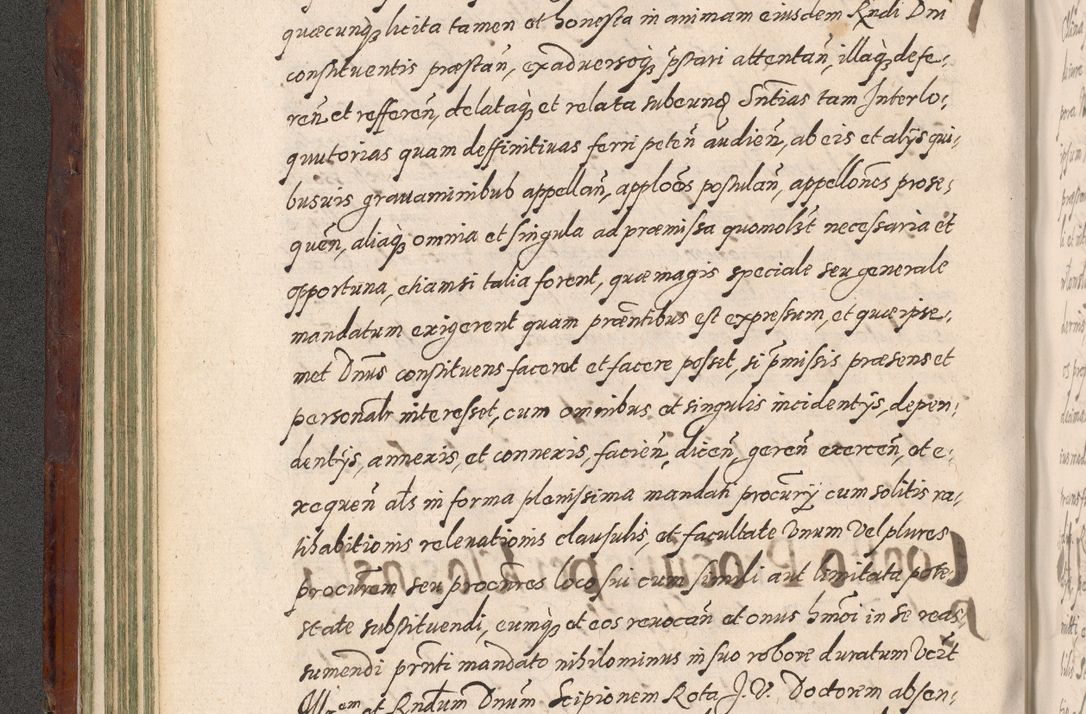 quæcunq̃ licita tamen et honesta in animam eiusdem Rndi Dni
constituentis præstan̄, ex aduersoq̃ p̄stari attentan̄, illaq̃ defe-
ren̄ et refferen̄, delataq̃ et relata subeunð Sn̄tias tam Interlo-
quutorias quam deffinitiuas ferri peten̄ audien̄, ab eis et alijs qui-
busuis grauaminibus appellan̄, applōes postulan̄, appellōnes prose-
quen̄, aliaq̃ omnia et singula ad præmissa quomolst̄ necessaria et
opportuna, etiamsi talia forent, quæ magis speciale seu generale
mandatum exigerent quam præn̄tibus est expressum, et quæ ipse-
met Dnūs constituens faceret et facere posset, si p̄missis præsens et
personalr interesset, cum omnibus et singulis incidentijs, depen-
dentijs, annexis, et connexis, facien̄, dicen̄, geren̄ exercen̄, et e-
xequen̄ als in forma plenissima mandati procur̄ij cum solitis ra-
tihabitionis releuationis clausulis, et facultate Vnum Vel plures
procur̄em seu procur̄es loco sui cum simili aut limitata pote-
state substituendi, eumq̃ et eos reuocan̄ et onus hm̄oi in se reas-
sumendi prn̄ti mandato nihilominus in suo robore duratum Vert̄
Illrem et Rndum Dnūm Scipionem Rota J. V. Doctorem absen-